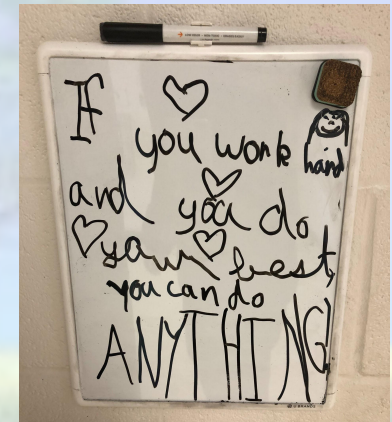 If
you work hard
and you do
your best,
you can do
ANYTHING!